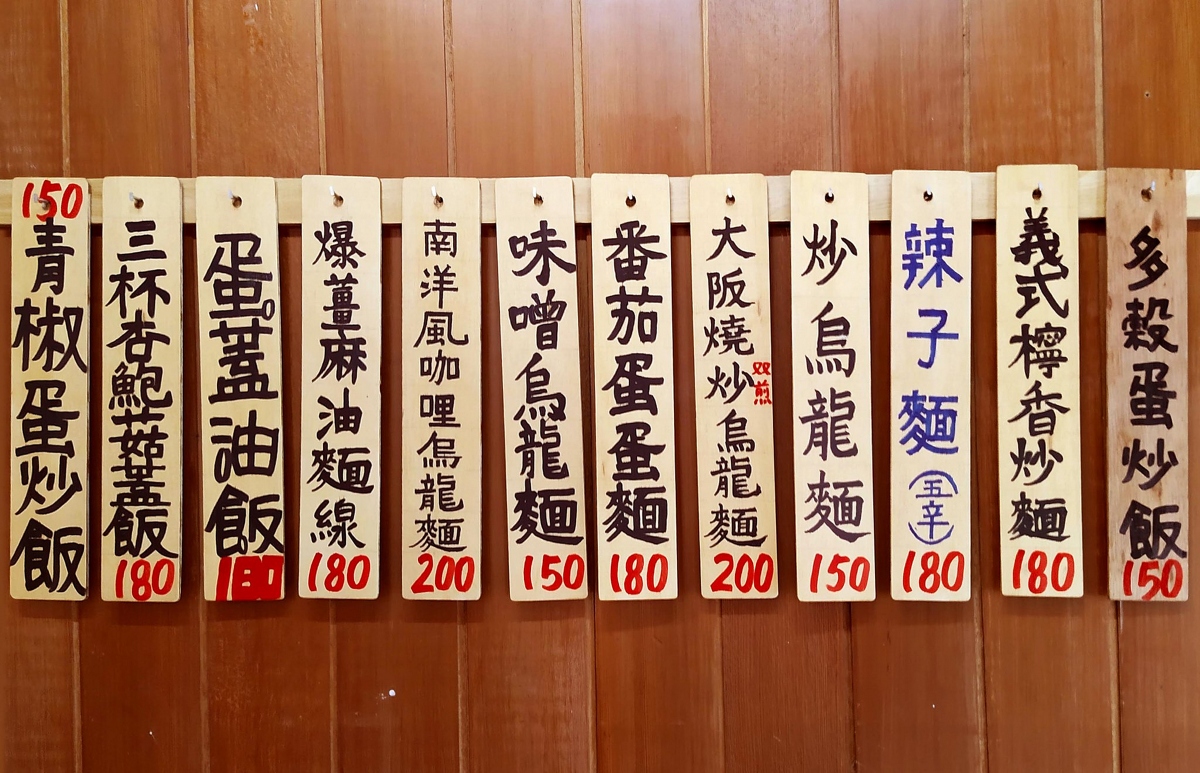 150
青椒蛋炒飯
三杯杏鮑菇蓋飯
180
蛋蓋油飯
爆薑麻油麵線
180
南洋風咖哩烏龍麵
200
味噌烏龍麵
150
番茄蛋蛋麵
180
大阪燒炒烏龍麵
双煎
200
炒烏龍麵
150
辣子麵(五辛)
180
義式檸香炒麵
180
多穀蛋炒飯
150